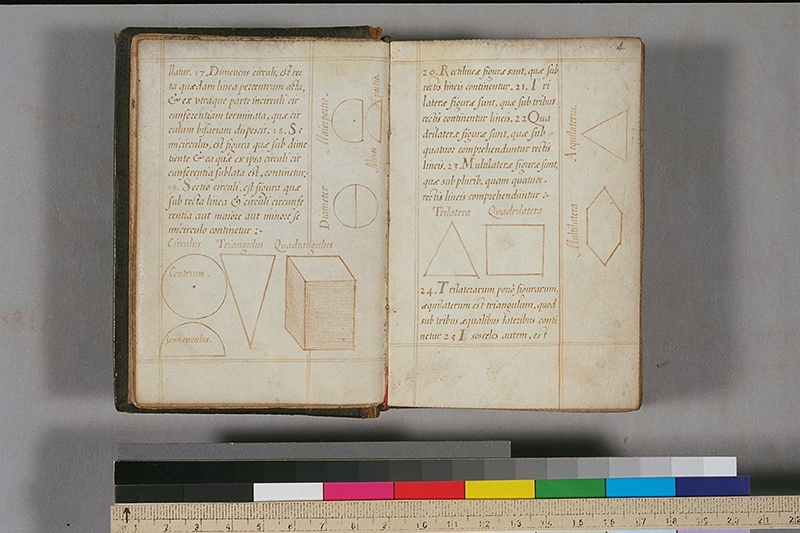 llatur. 17. Dimetiens circuli, est rec
ta quædam linea per centrum acta,
& ex vtraque parte in circuli cir
cunferentiam terminata, quæ cir
culum bifariam dispescit. 18. Se
micirculus, est figura quæ sub dime
tiente & ea quæ ex ipsa circuli cir
cunferentia sublata est, continetur.
19. Sectio circuli, est figura quæ
sub recta linea & circuli circunfe
rentia aut maiore aut minore se
micirculo continetur :-
Maior portio.
Minor portio.
Diameter
Circulus Triangulus Quadrangulus
Centrum.
Semicirculus.
4
20. Rectilineæ figuræ sunt, quæ sub
rectis lineis continentur. 21. Tri
lateræ figuræ sunt, quæ sub tribus
rectis continentur lineis. 22 Qua
drilateræ figuræ sunt, quæ sub
quatuor comprehenduntur rectis
lineis. 23. Multilateræ figuræ sunt,
quæ sub plurib. quam quatuor
rectis lineis comprehenduntur :-
Aequilaterus.
Multilatera
Trilatera Quadrilatera
24. Trilaterarum porrò figurarum,
æquilaterum est triangulum, quod
sub tribus æqualibus lateribus conti
netur 25 Isosceles autem, est
1 2 3 4 5 6 7 8 9 10 11 12 13 14 15 16 17 18 19 20 21 22